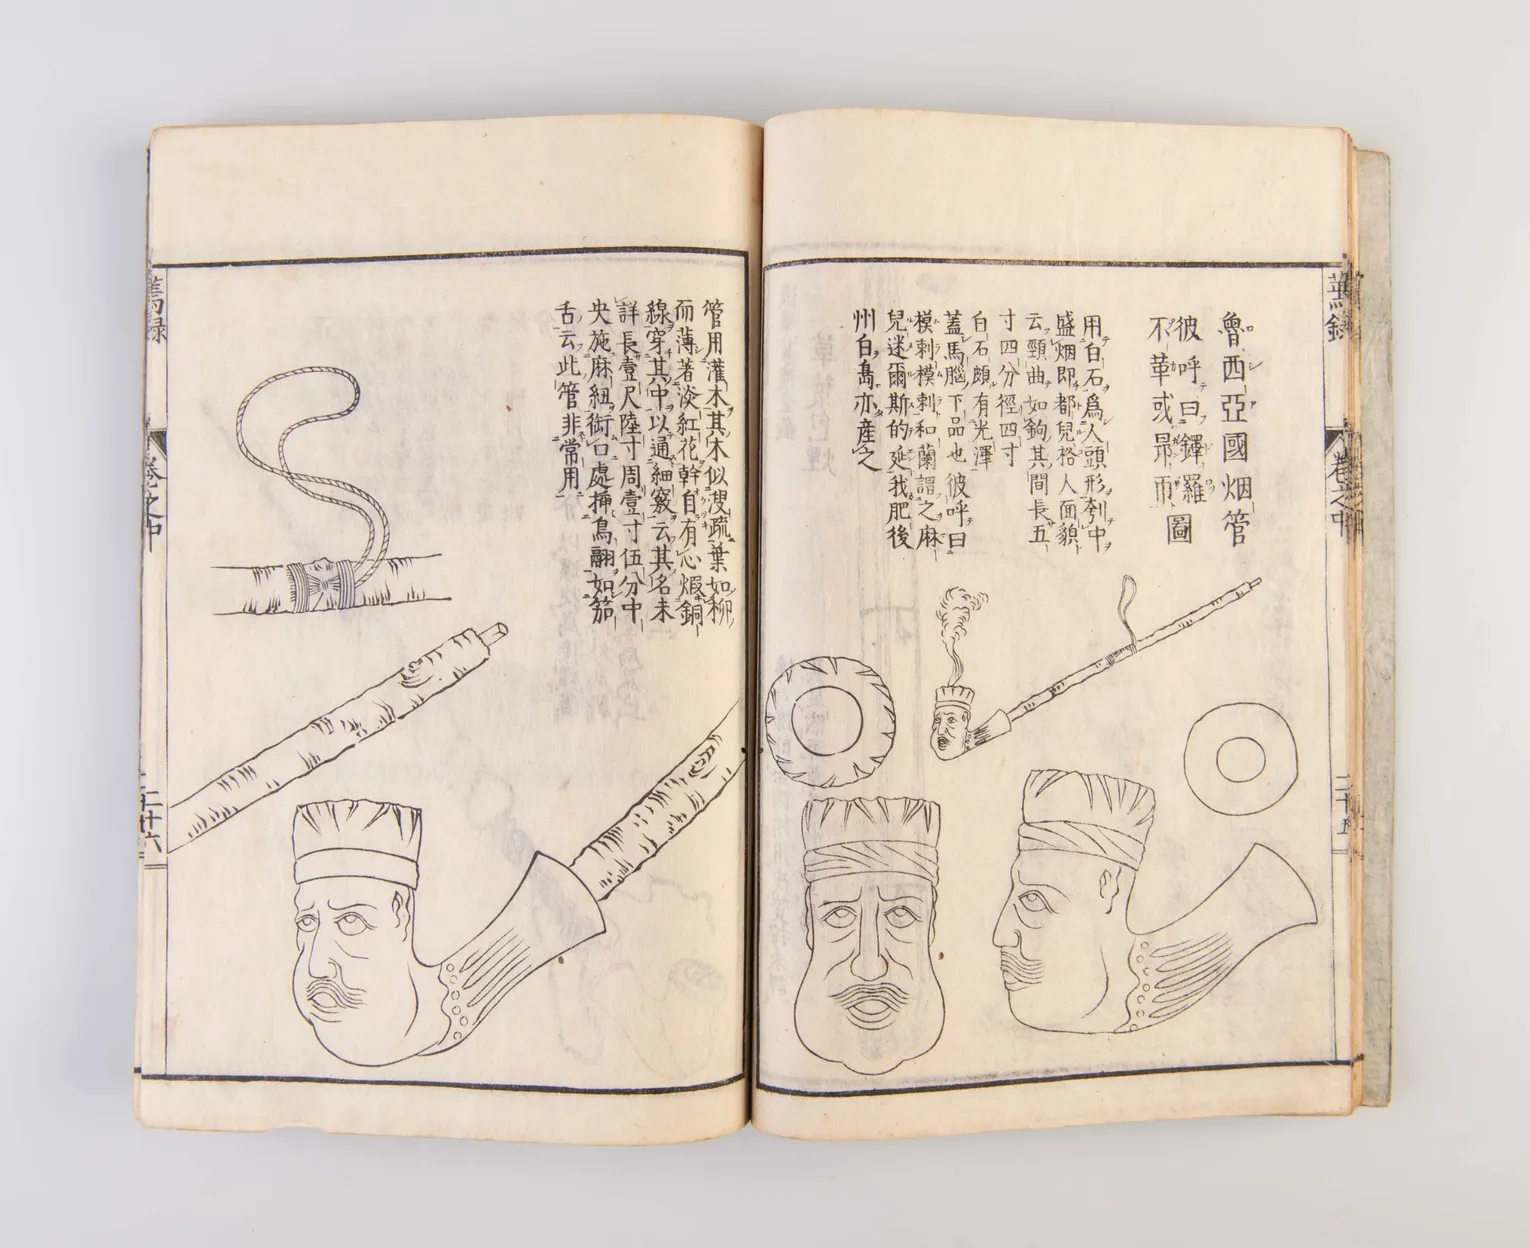 魯西亞國烟管
彼呼曰鐸羅
不革或昂而圖
用白石爲人頭形刳中
盛烟即都兒格人面貌
云頸曲如鉤其間長五
寸四分徑四寸
白石頗有光澤
蓋馬腦下品也彼呼曰
模刺模刺和蘭謂之麻
兒迷爾斯的延我肥後
州白島亦産之
卷之中
管用灌木其木似溲疏葉如柳
而薄著淡紅花幹自有心煆銅
線穿其中以通細竅云其名未
詳長壹尺陸寸周壹寸伍分中
央施麻紐銜口處揷鳥翮如笳
舌云此管非常用
卷之中
二十六